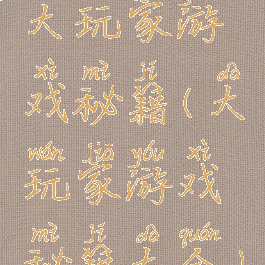 大玩家游
xì mì jí dà
戏秘籍(大
wán jiā yóu xì
玩家游戏
mì jí dà quán
秘籍大全)